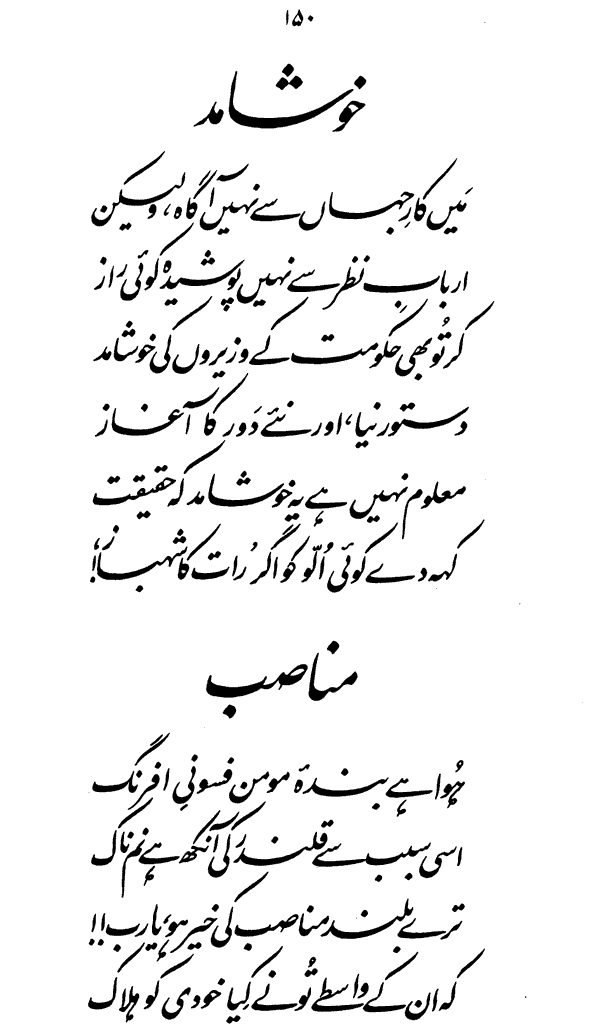 ۱۵۰
خوشامد
مَیں کارِ جہاں سے نہیں آگاہ، ولیکن
اربابِ نظر سے نہیں پوشیدہ کوئی راز
کر تُو بھی حکومت کے وزیروں کی خوشامد
دستور نیا، اور نئے دَور کا آغاز
معلوم نہیں ہے یہ خوشامد کہ حقیقت
کہہ دے کوئی اُلّو کو اگر 'رات کا شہباز'!
مناصب
ہُوا ہے بندۂ مومن فسونیِ افرنگ
اسی سبب سے قلندر کی آنکھ ہے نم ناک
ترے بلند مناصب کی خیر ہو، یارب!!
کہ ان کے واسطے تُو نے کِیا خودی کو ہلاک